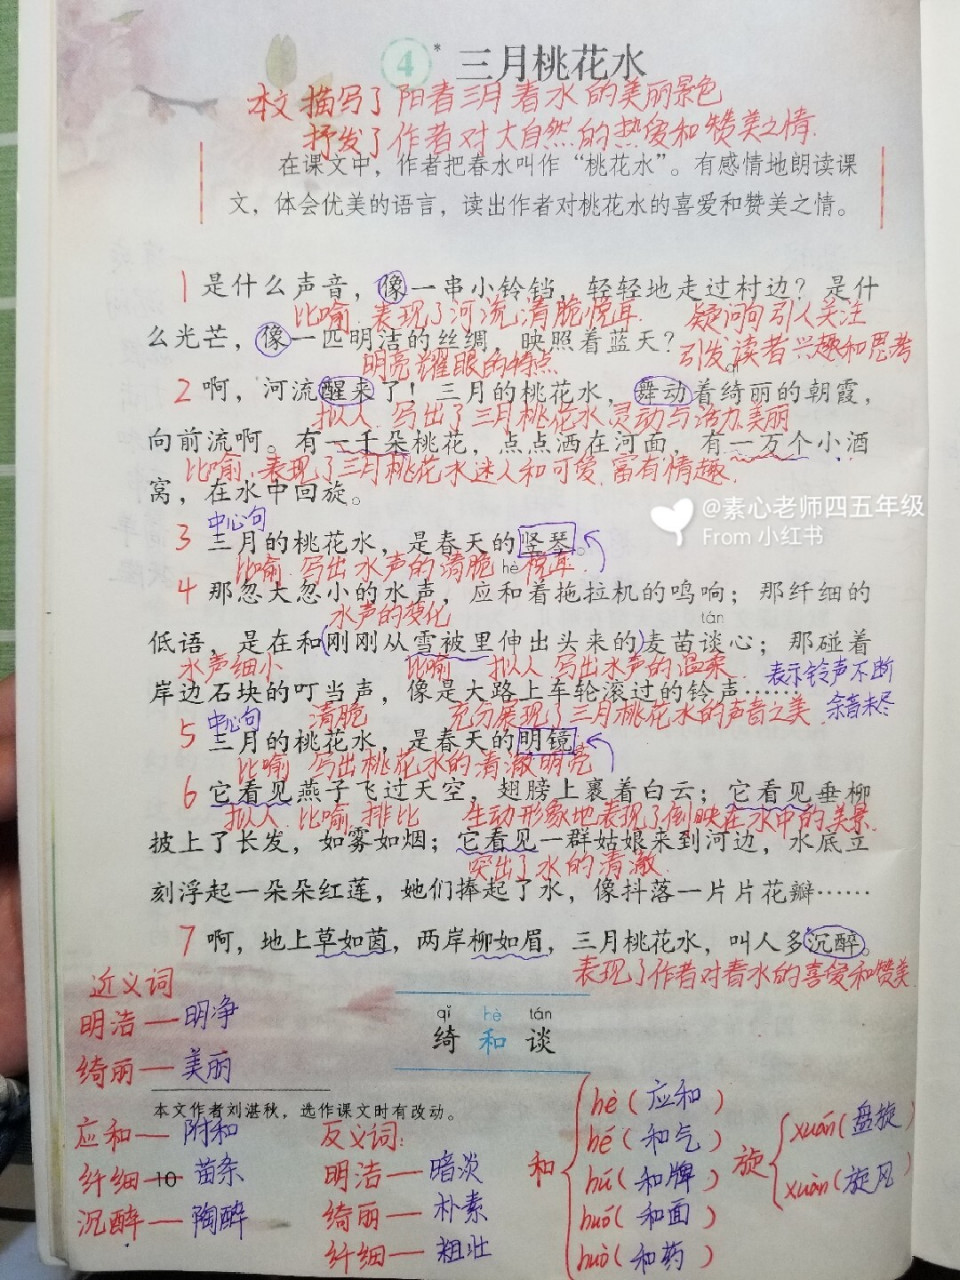 4* 三月桃花水
本文描写了阳春三月春水的美丽景色
抒发了作者对大自然的热爱和赞美之情.
在课文中，作者把春水叫作“桃花水”。有感情地朗读课
文，体会优美的语言，读出作者对桃花水的喜爱和赞美之情。
1 是什么声音，像一串小铃铛，轻轻地走过村边？是什
比喻.表现了河流清脆悦耳. 疑问句引人关注
么光芒，像一匹明洁的丝绸，映照着蓝天？
明亮耀眼的特点 引发读者兴趣和思考
qǐ
2 啊，河流醒来了！三月的桃花水，舞动着绮丽的朝霞，
拟人.写出了三月桃花水灵动与活力美丽
向前流啊。有一千朵桃花，点点洒在河面，有一万个小酒
比喻.表现了三月桃花水迷人和可爱.富有情趣.
窝，在水中回旋。
@素心老师四五年级
From 小红书
中心句
3 三月的桃花水，是春天的竖琴。
比喻.写出水声的清脆悦耳.
hè
4 那忽大忽小的水声，应和着拖拉机的鸣响；那纤细的
水声的变化
tán
低语，是在和(刚刚从雪被里伸出头来的)麦苗谈心；那碰着
水声细小 比喻 拟人 写出水声的温柔. 表示铃声不断
岸边石块的叮当声，像是大路上车轮滚过的铃声……
余音未尽
中心句 清脆 充分展现了三月桃花水的声音之美.
5 三月的桃花水，是春天的明镜。
比喻 写出桃花水的清澈明亮
6 它看见燕子飞过天空，翅膀上裹着白云；它看见垂柳
拟人.比喻.排比 生动形象地表现了倒映在水中的美景.
披上了长发，如雾如烟；它看见一群姑娘来到河边，水底立
突出了水的清澈.
刻浮起一朵朵红莲，她们捧起了水，像抖落一片片花瓣……
7 啊，地上草如茵，两岸柳如眉，三月桃花水，叫人多沉醉。
表现了作者对春水的喜爱和赞美.
近义词
明洁—明净
绮丽—美丽
qǐ hè tán
绮 和 谈
本文作者刘湛秋，选作课文时有改动。
应和—附和
纤细—苗条
沉醉—陶醉
10
反义词:
明洁—暗淡
绮丽—朴素
纤细—粗壮
和
hè(应和)
hé(和气)
hú(和牌)
huó(和面)
huò(和药)
旋
xuán(盘旋)
xuàn(旋风)